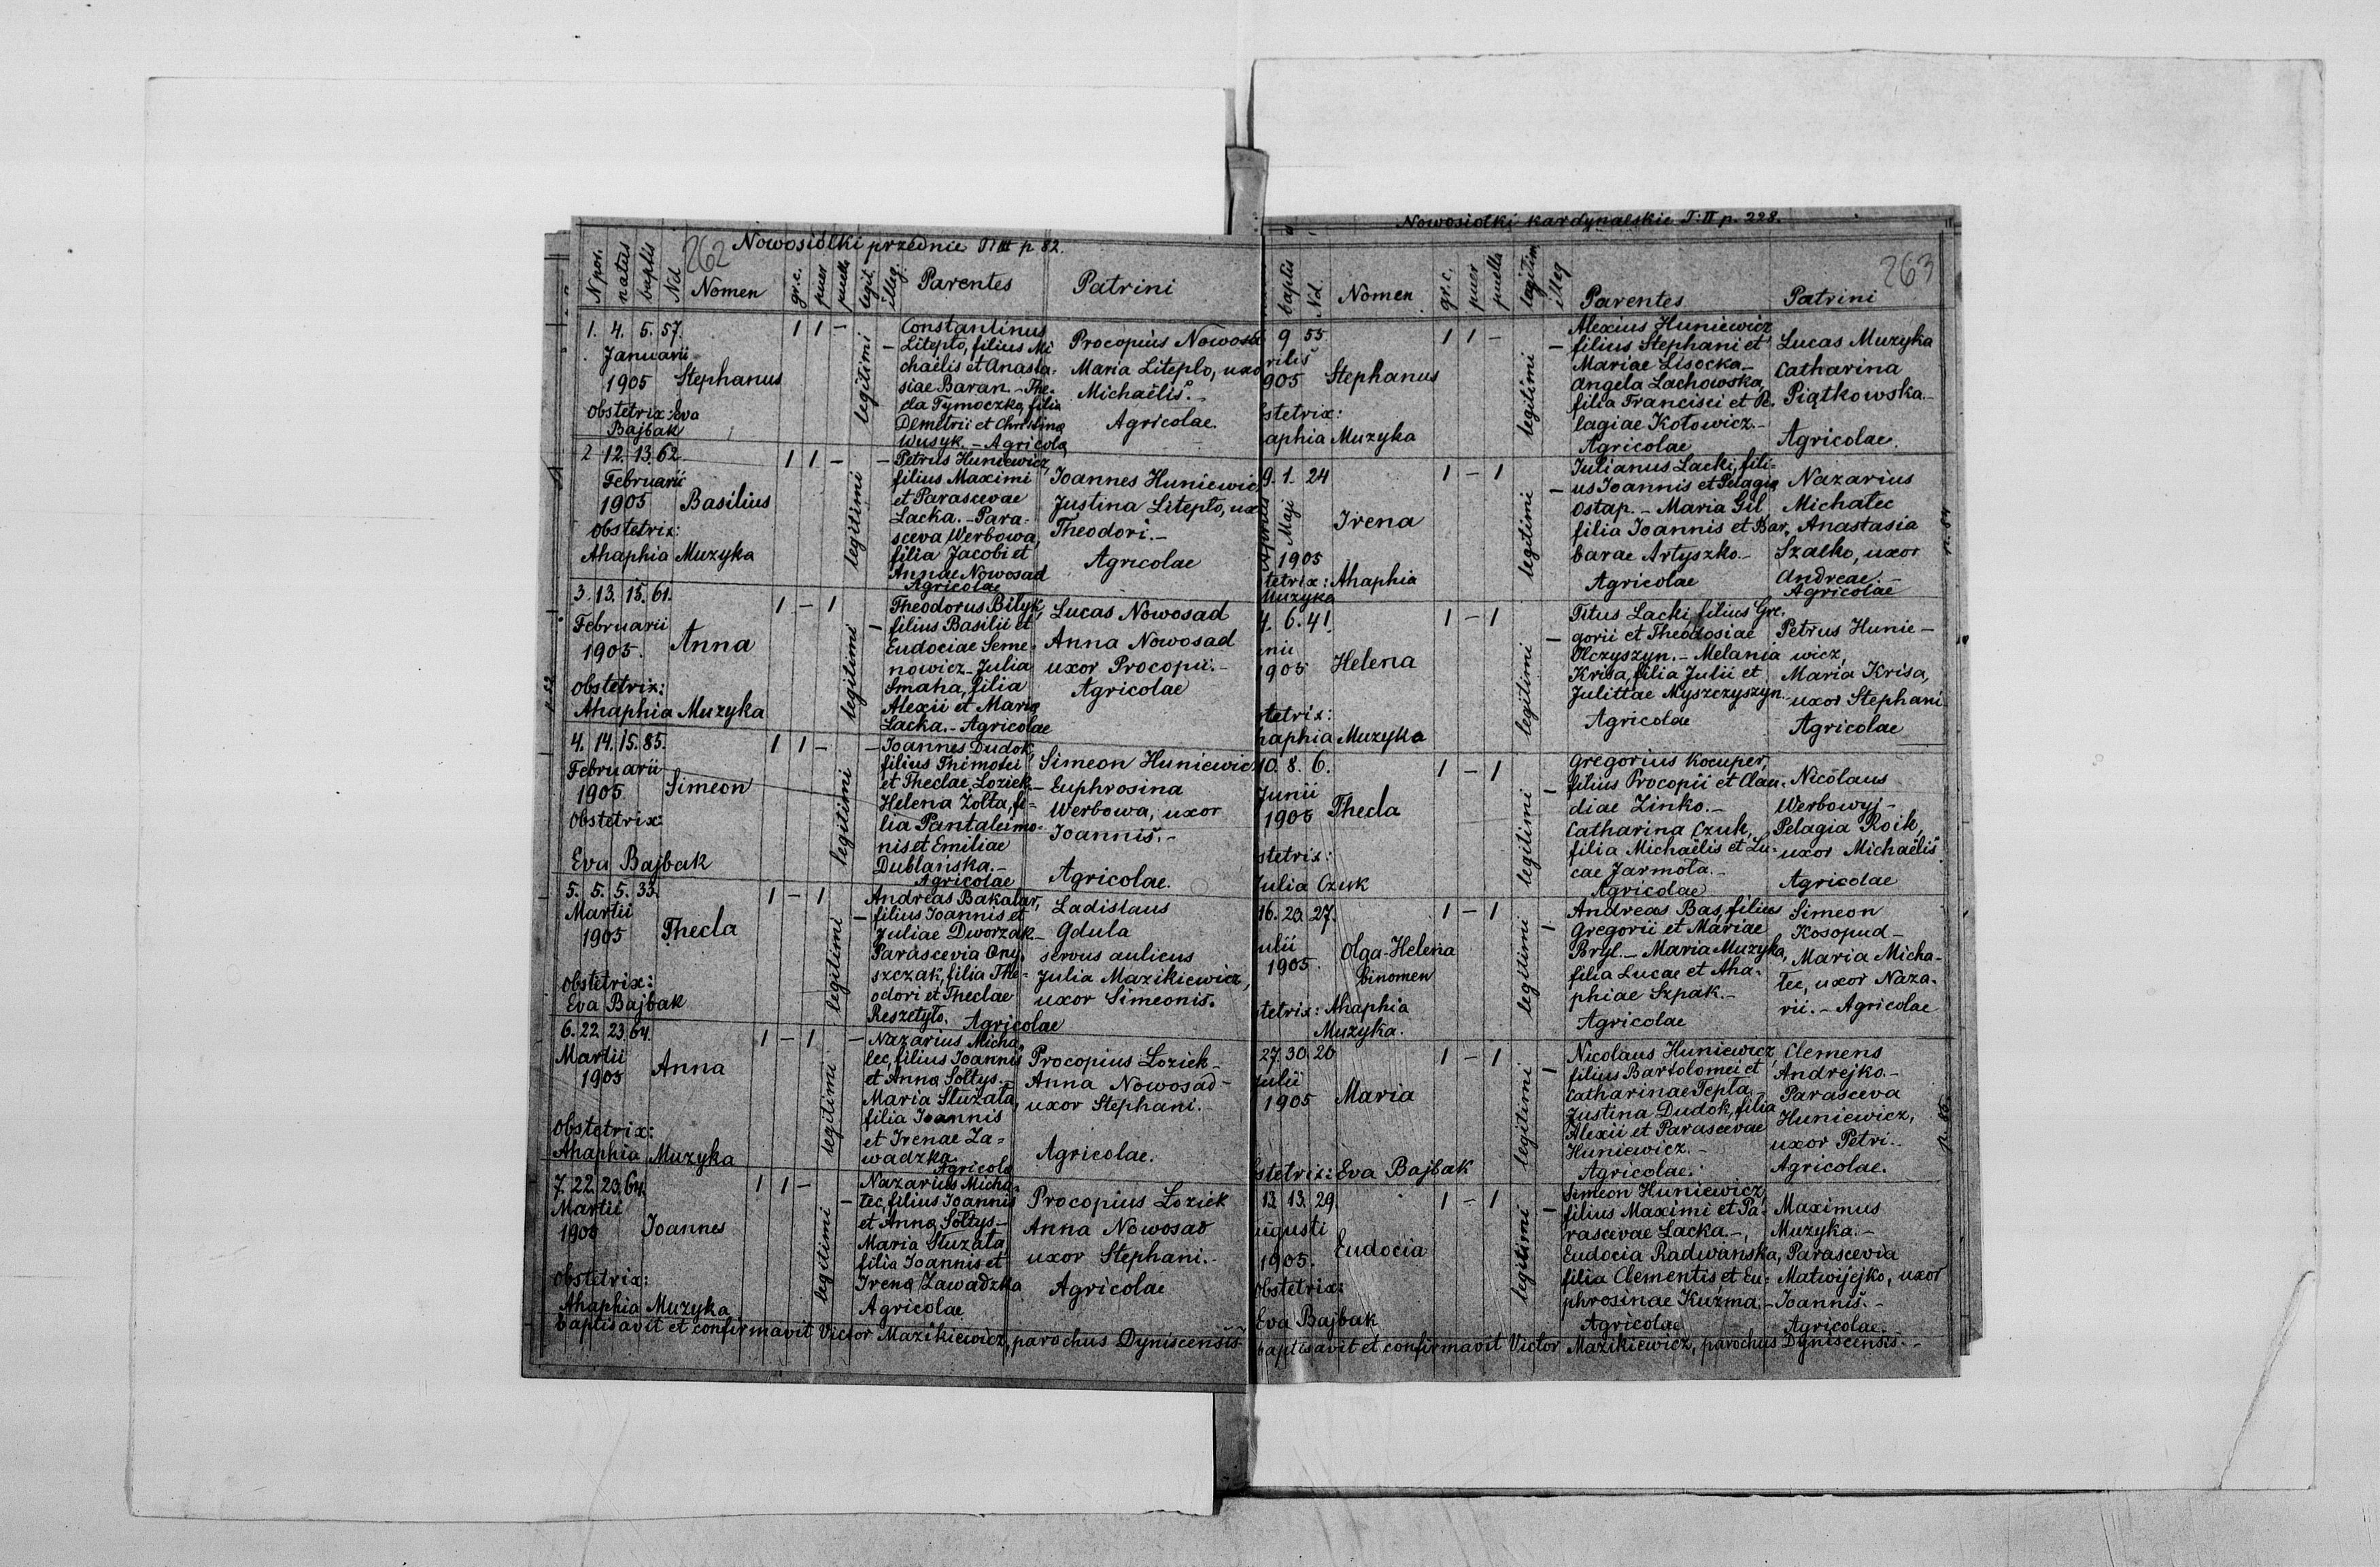 262 Nowosiółki przednie T III p 82.
N por. natus baptis Nd Nomen gr.c. puer puella legit. illeg. Parentes Patrini
1. 4. 5. 57.
Januarii
1905 Stephanus
Obstetrix: Eva
Bajbak
1 1 – legitimi –
Constantinus
Litepło, filius Mi
chaëlis et Anasta-
siae Baran. – The-
cla Tymoczko, filia
Demetrii et Christina
Wusyk. – Agricola
Procopius Nowosa
Maria Litepło, uxo
Michaëlis. –
Agricolae.
2 12. 13. 62
Februarii
1905 Basilius
Obstetrix:
Ahaphia Muzyka
1 1 – legitimi –
Petrus Huniewicz,
filius Maximi
et Parascevae
Lacka. – Para-
sceva Werbowa,
filia Jacobi et
Annae Nowosad
Agricolae
Joannes Huniewic
Justina Litepło, ux
Theodori. –
Agricolae
3. 13. 15. 61.
Februarii
1905. Anna
Obstetrix:
Ahaphia Muzyka
1 – 1 legitimi –
Theodorus Bilyk,
filius Basilii et
Eudociae Seme-
nowicz – Julia
Smaha, filia
Alexii et Maria
Lacka. – Agricolae
Lucas Nowosad
Anna Nowosad
uxor Procopii. –
Agricolae
4. 14. 15. 85.
Februarii
1905 Simeon
Obstetrix:
Eva Bajbak
1 1 – legitimi –
Joannes Dudok,
filius Thimotei
et Theclae Loziek –
Helena Żołta, fi-
lia Pantaleimo-
nis et Emiliae
Dublańska. –
Agricolae
Simeon Huniewic
Euphrosina
Werbowa, uxor
Joannis. –
Agricolae.
5. 5. 5. 33.
Martii
1905 Thecla
Obstetrix:
Eva Bajbak
1 – 1 legitimi –
Andreas Bakalar,
filius Joannis et
Juliae Dworzak –
Parascevia Ony-
szczak, filia The-
odori et Theclae
Reszetyło. Agricolae
Ladislaus
Gdula
servus aulicus
Julia Mazikiewicz,
uxor Simeonis.
6. 22. 23. 64.
Martii
1905 Anna
Obstetrix:
Ahaphia Muzyka
1 – 1 legitimi –
Nazarius Micha-
lec, filius Joannis
et Anna Sołtys –
Maria Służała,
filia Joannis
et Irenae Za-
wadzka.
Agricola
Procopius Loziek –
Anna Nowosad –
uxor Stephani. –
Agricolae.
7. 22. 23. 64.
Martii
1905 Joannes
Obstetrix:
Ahaphia Muzyka
1 1 – legitimi –
Nazarius Micha-
lec, filius Joannis
et Anna Sołtys –
Maria Służała
filia Joannis et
Irena Zawadzka
Agricolae
Procopius Loziek
Anna Nowosad
uxor Stephani. –
Agricolae
baptisavit et confirmavit Victor Mazikiewicz, parochus Dyniscensis
Nowosiółki kardynalskie T: II p. 228.
263
baptis Nd. Nomen gr.c. puer puella legitim illeg Parentes Patrini
9 55
rilis
905 Stephanus
stetrix:
aphia Muzyka
1 1 – legitimi –
Alexius Huniewicz
filius Stephani et
Mariae Lisocka –
Angela Lachowska,
filia Francisci et Pe-
lagiae Kotowicz. –
Agricolae
Lucas Muzyka
Catharina
Piątkowska. –
Agricolae.
9. 1. 24
Aprilis Maji
Irena
1905
tetrix: Ahaphia
Muzyka
1 – 1 legitimi –
Julianus Lacki, fili-
us Joannis et Pelagia
Ostap. – Maria Gil
filia Joannis et Bar-
barae Artyszko. –
Agricolae
Nazarius
Michalec
Anastasia
Szalko, uxor
Andreae. –
Agricolae
4. 6. 41.
nii
1905 Helena
tetrix:
haphia Muzyka
1 – 1 legitimi –
Titus Lacki, filius Gre-
gorii et Theodosiae
Olczyszyn. – Melania
Krisa, filia Julii et
Julittae Myszczyszyn.
Agricolae
Petrus Hunie-
wicz,
Maria Krisa,
uxor Stephani
Agricolae
10. 8. 6.
Junii
1905 Thecla
stetrix:
Julia Czuk
1 – 1 legitimi –
Gregorius Kocuper,
filius Procopii et Clau-
diae Zinko. –
Catharina Czuk,
filia Michaëlis et Lu-
cae Jarmoła. –
Agricolae
Nicolaus
Werbowyj –
Pelagia Roik,
uxor Michaëlis
Agricolae
16. 23. 27.
ulii
1905. Olga-Helena
binomen
tetrix: Ahaphia
Muzyka.
1 – 1 legitimi –
Andreas Bas, filius
Gregorii et Mariae
Bryl. – Maria Muzyka,
filia Lucae et Aha-
phiae Szpak. –
Agricolae
Simeon
Kosopud –
Maria Micha-
lec, uxor Naza-
rii. – Agricolae
27. 30. 20
Julii
1905 Maria
stetrix: Eva Bajbak
1 – 1 legitimi –
Nicolaus Huniewicz,
filius Bartolomei et
Catharinae Tepla –
Justina Dudok, filia
Alexii et Parascevae
Huniewicz. –
Agricolae.
Clemens
Andrejko. –
Parasceva
Huniewicz,
uxor Petri. –
Agricolae.
13. 13. 29.
ugusti
1905. Eudocia
Obstetrix:
Eva Bajbak
1 – 1 legitimi –
Simeon Huniewicz,
filius Maximi et Pa-
rascevae Lacka. –,
Eudocia Radwańska,
filia Clementis et Eu-
phrosinae Kuźma. –
Agricolae
Maximus
Muzyka. –
Parascevia
Matwijejko, uxor
Joannis. –
Agricolae.
baptisavit et confirmavit Victor Mazikiewicz, parochus Dyniscensis. –